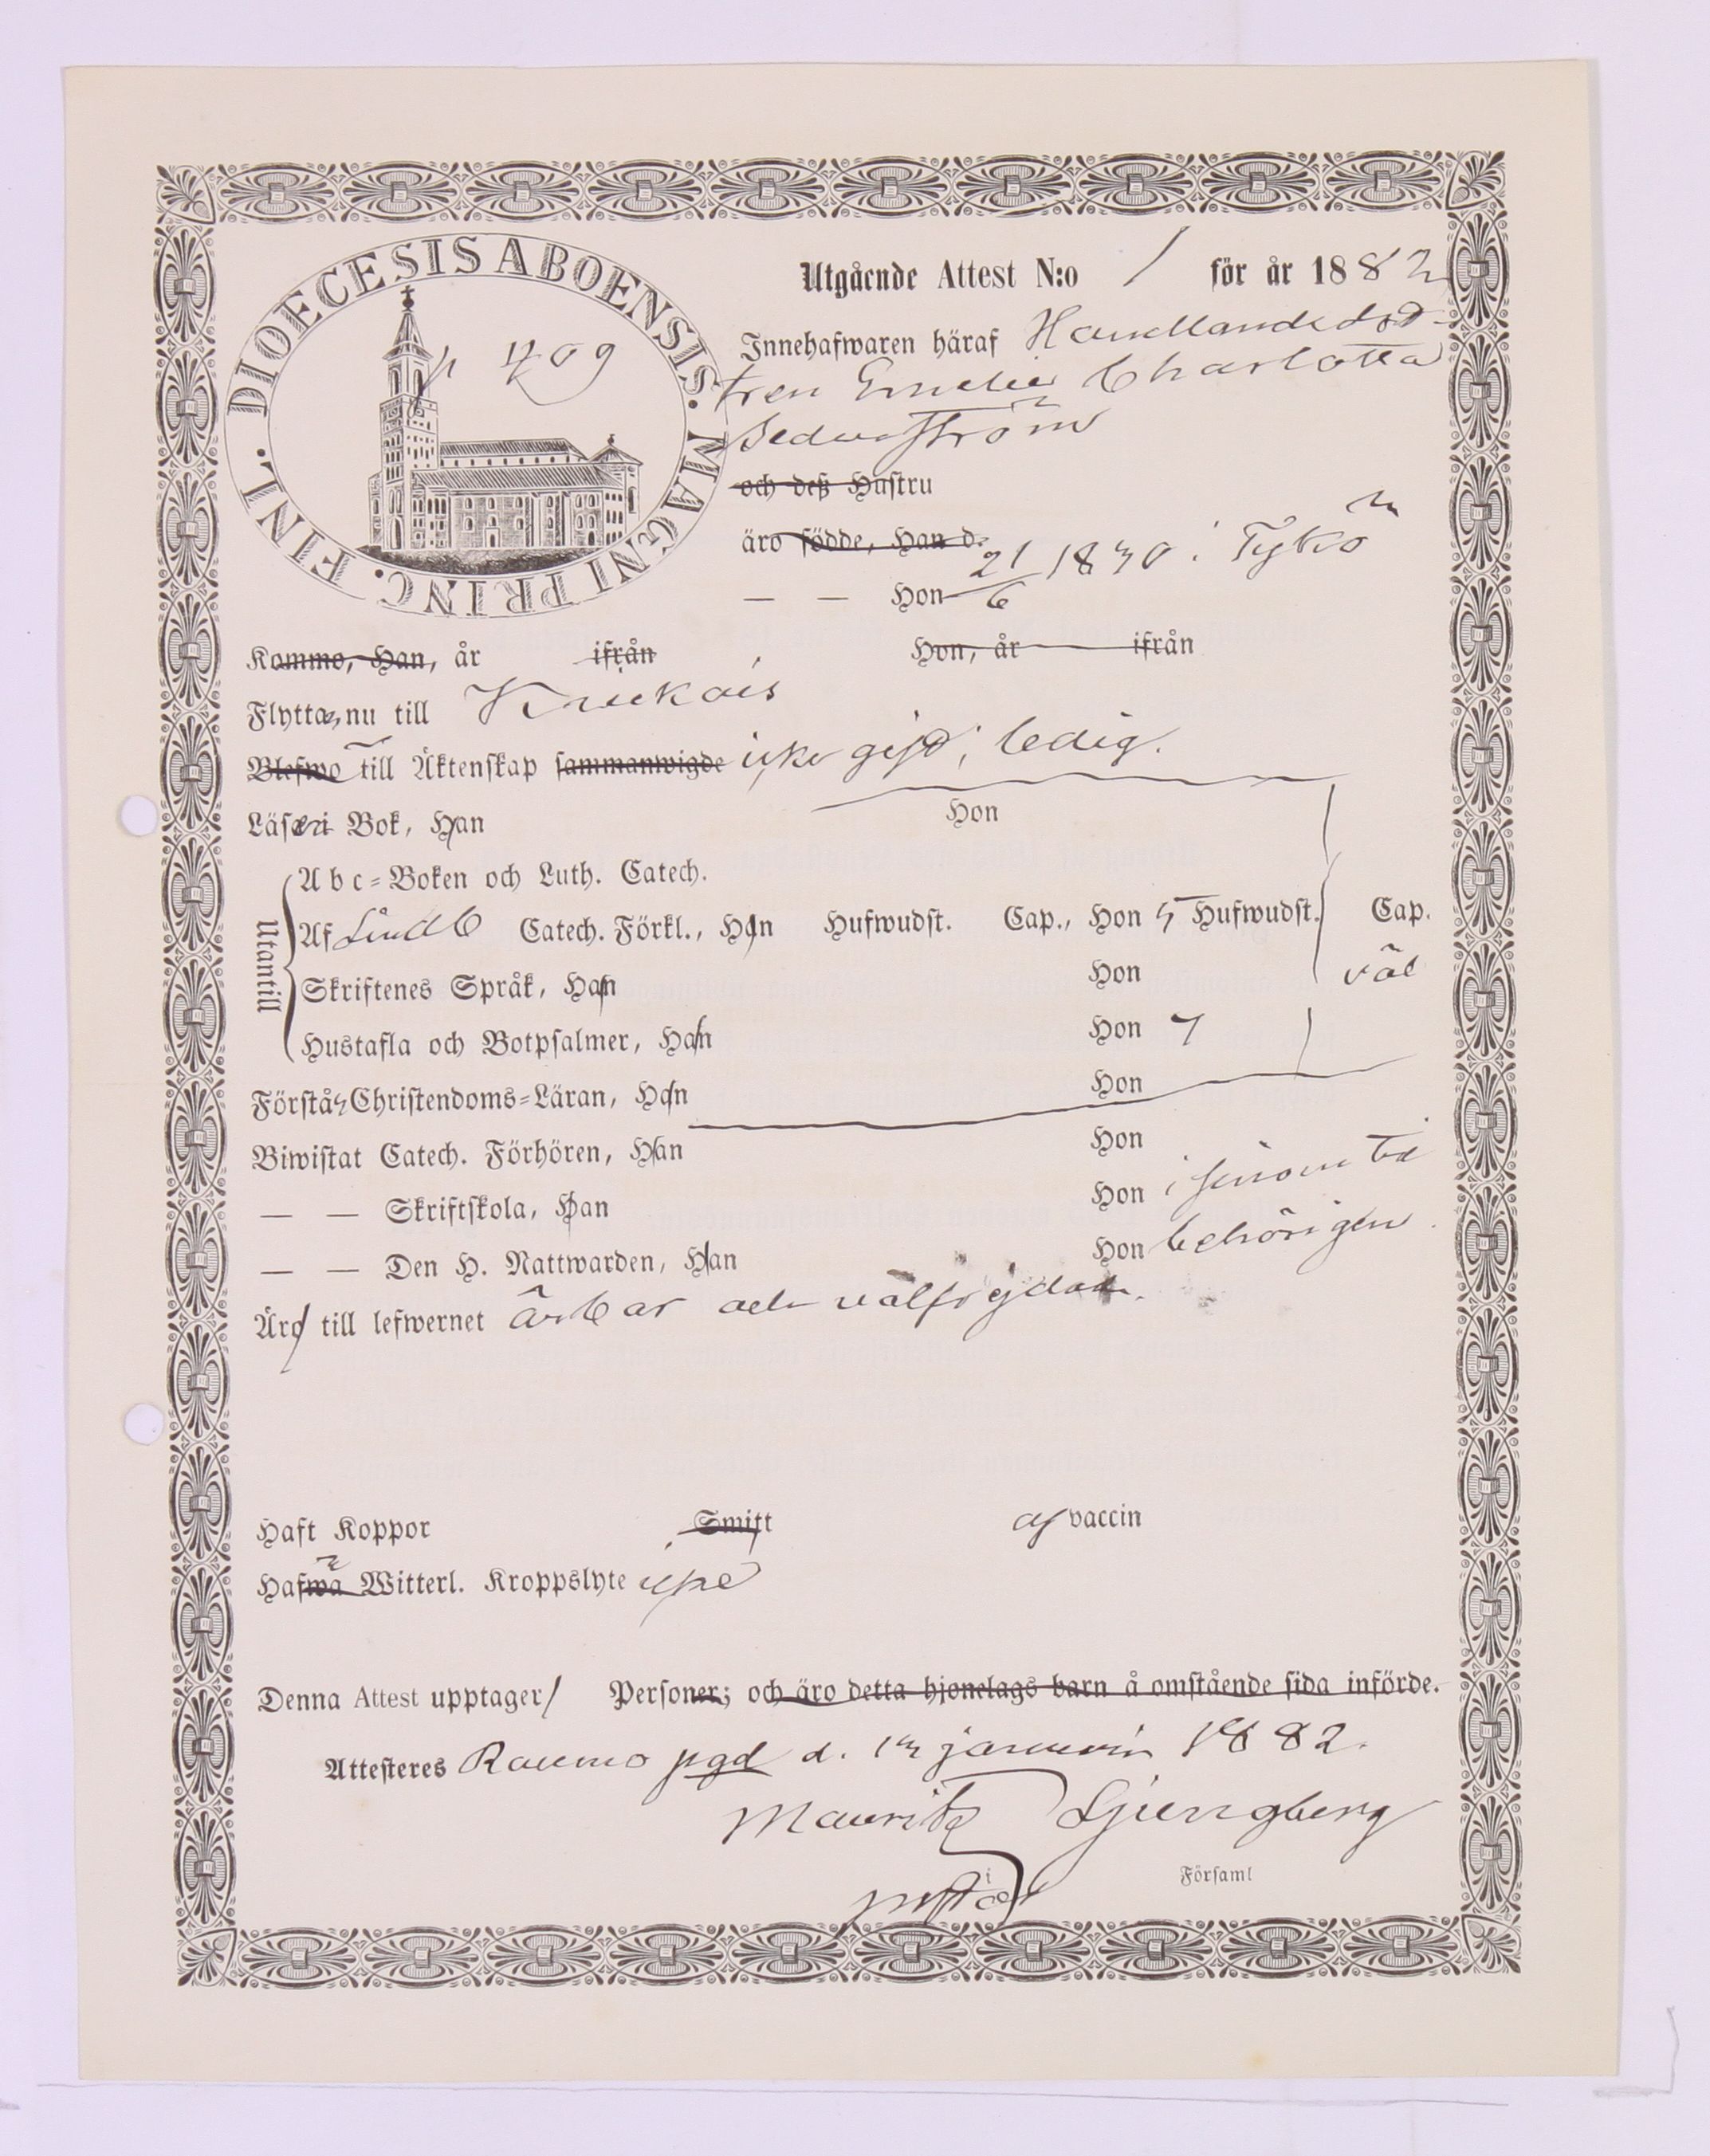 DIOECESIS ABOENSIS. MAGNI PRINC. FINL.
p 409
Utgående Attest N:o 1 för år 1882
Innehafwaren häraf Handlandedot-
tren Emelie Charlotta
och deß Hustru
äro födde, Han d.
— — Hon 21/6 1840 i Tykö
Kommo, Han, år ifrån Hon, år ifrån
Flyttar nu till
Blefwo till Äktenskap sammanwigde icke gift, ledig.
Läser i Bok, Han Hon
Utantill
Abc-Boken och Luth. Catech.
Af Lindb Catech. Förkl., Han Hufwudst. Cap., Hon 5 Hufwudst. Cap.
Skriftenes Språk, Han Hon väl
Hustafla och Botpsalmer, Han Hon
Förstår Christendoms-Läran, Han Hon
Biwistat Catech. Förhören, Han Hon
— — Skriftskola, Han Hon i sinom tid
— — Den H. Nattwarden, Han Hon behörigen.
Äro till lefwernet ärbar och välfrejdad.
Haft Koppor Smitt af vaccin
Hafwa Witterl. Kroppslyte icke
Denna Attest upptager 1 Personer; och äro detta hjonelags barn å omstående sida införde.
Attesteres Raumo pgd d. januari 1882.
Mauritz Ljungberg
i Församl
pastor